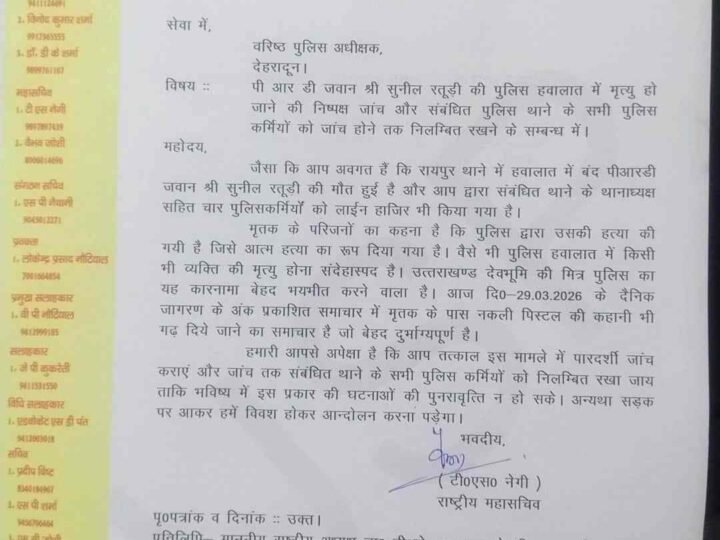 9411124691
2. विनोद कुमार शर्मा
3. डॉ. डी के शर्मा
9899761167
महासचिव
1. टी एस नेगी
9897897439
2. वैभव जोशी
8006014696
संगठन सचिव
1. एस पी नेवाली
प्रवक्ता
1. लोकेन्द्र प्रसाद नौटियाल
7001664854
प्रमुख सलाहकार
1. वी पी नौटियाल
9412999185
सलाहकार
1. जे पी कुकरेती
9411531550
विधि सलाहकार
1. एडवोकेट एस डी पंत
9412003018
सचिव
1. प्रदीप बिष्ट
2. एस पी शर्मा
9456706464
सेवा में,
वरिष्ठ पुलिस अधीक्षक,
देहरादून।
विषय :: पी आर डी जवान श्री सुनील रतूड़ी की पुलिस हवालात में मृत्यु हो
जाने की निष्पक्ष जांच और संबंधित पुलिस थाने के सभी पुलिस
कर्मियों को जांच होने तक निलम्बित रखने के सम्बन्ध में।
महोदय,
जैसा कि आप अवगत हैं कि रायपुर थाने में हवालात में बंद पीआरडी
जवान श्री सुनील रतूड़ी की मौत हुई है और आप द्वारा संबंधित थाने के थानाध्यक्ष
सहित चार पुलिसकर्मियों को लाईन हाजिर भी किया गया है।
मृतक के परिजनों का कहना है कि पुलिस द्वारा उसकी हत्या की
गयी है जिसे आत्म हत्या का रूप दिया गया है। वैसे भी पुलिस हवालात में किसी
भी व्यक्ति की मृत्यु होना संदेहास्पद है। उत्तराखण्ड देवभूमि की मित्र पुलिस का
यह कारनामा बेहद भयभीत करने वाला है। आज दि0-29.03.2026 के दैनिक
जागरण के अंक प्रकाशित समाचार में मृतक के पास नकली पिस्टल की कहानी भी
गढ़ दिये जाने का समाचार है जो बेहद दुर्भाग्यपूर्ण है।
हमारी आपसे अपेक्षा है कि आप तत्काल इस मामले में पारदर्शी जांच
कराएं और जांच तक संबंधित थाने के सभी पुलिस कर्मियों को निलम्बित रखा जाय
ताकि भविष्य में इस प्रकार की घटनाओं की पुनरावृत्ति न हो सके। अन्यथा सड़क
पर आकर हमें विवश होकर आन्दोलन करना पड़ेगा।
भवदीय,
( टी0एस0 नेगी )
राष्ट्रीय महासचिव
पृ0पत्रांक व दिनांक :: उक्त।